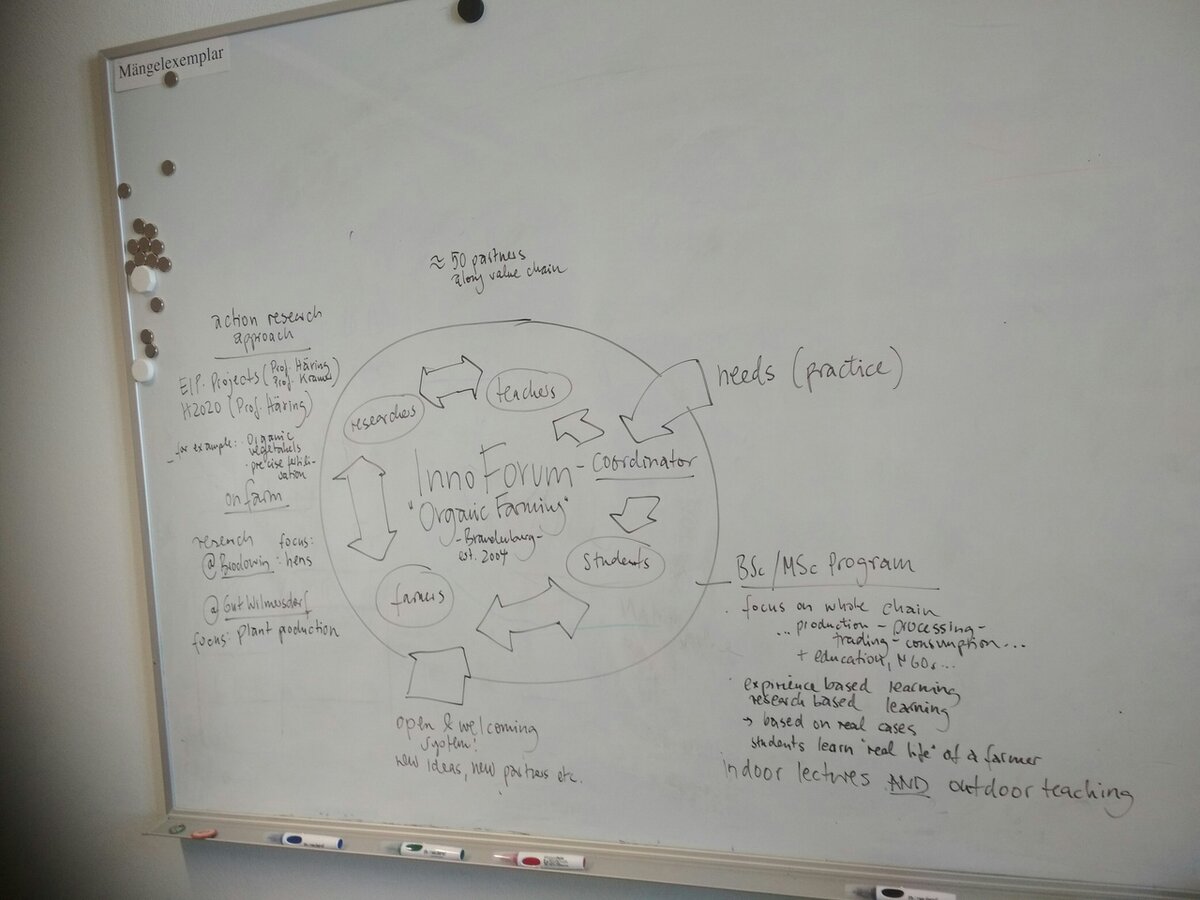 Mängelexemplar
≈ 50 partners
along value chain
action research
approach
EIP-Projects (Prof. Häring
Prof. Kramer)
H2020 (Prof. Häring)
for example: · Organic
vegetabels
· precise fertili-
sation
on farm
research focus:
@ Brodowin : hens
@ Gut Wilmersdorf
focus: plant production
researchers
teachers
InnoForum - coordinator
"Organic Farming"
- Brandenburg -
est. 2004
students
farmers
needs (practice)
open & welcoming
system:
new ideas, new partners etc.
BSc/MSc Program
· focus on whole chain
... production - processing -
trading - consumption ...
+ education, NGOs ...
· experience based learning
research based learning
→ based on real cases
students learn "real life" of a farmer
indoor lectures AND outdoor teaching